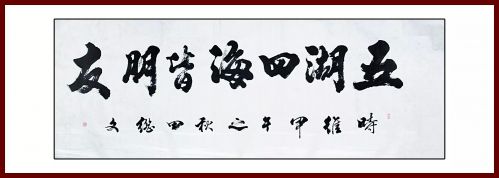 五湖四海皆朋友
時維甲午之秋田继文